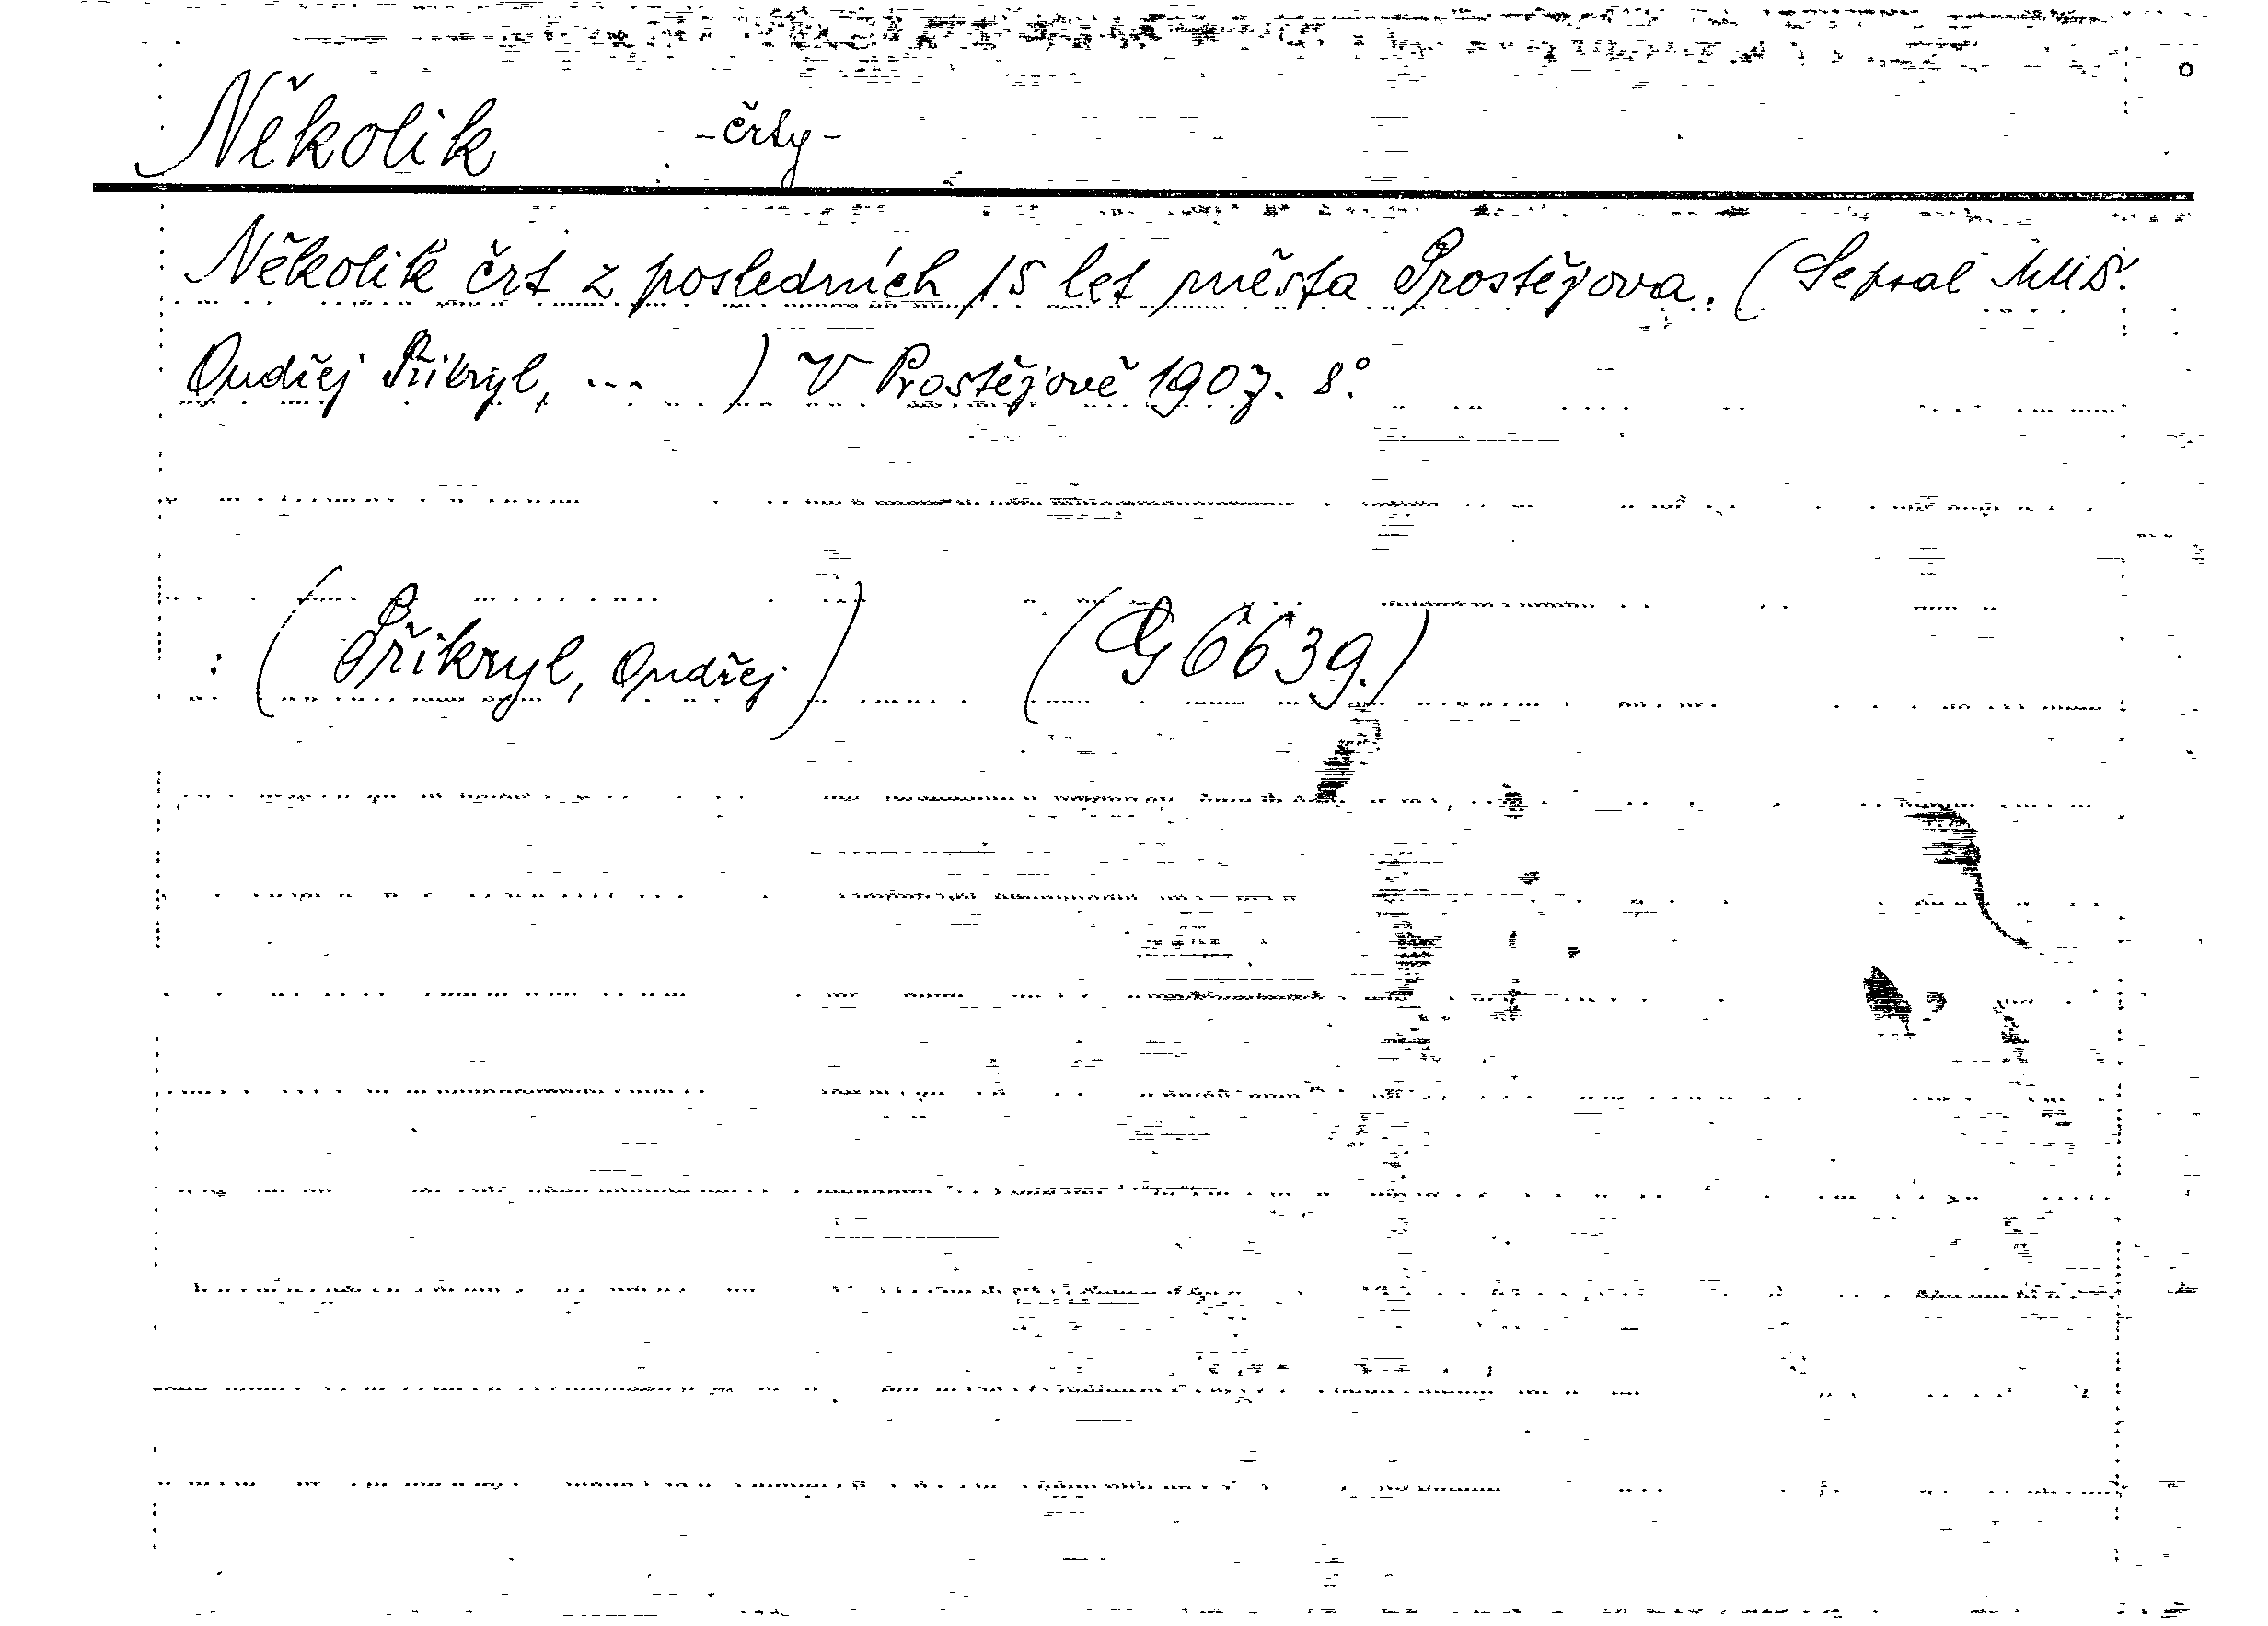 Několik -črty-
Několik črt z posledních 15 let města Prostějova. (Sepsal MUDr.
Ondřej Přikryl, ... ) V Prostějově 1907. 8°.
: (Přikryl, Ondřej) (G 6639.)